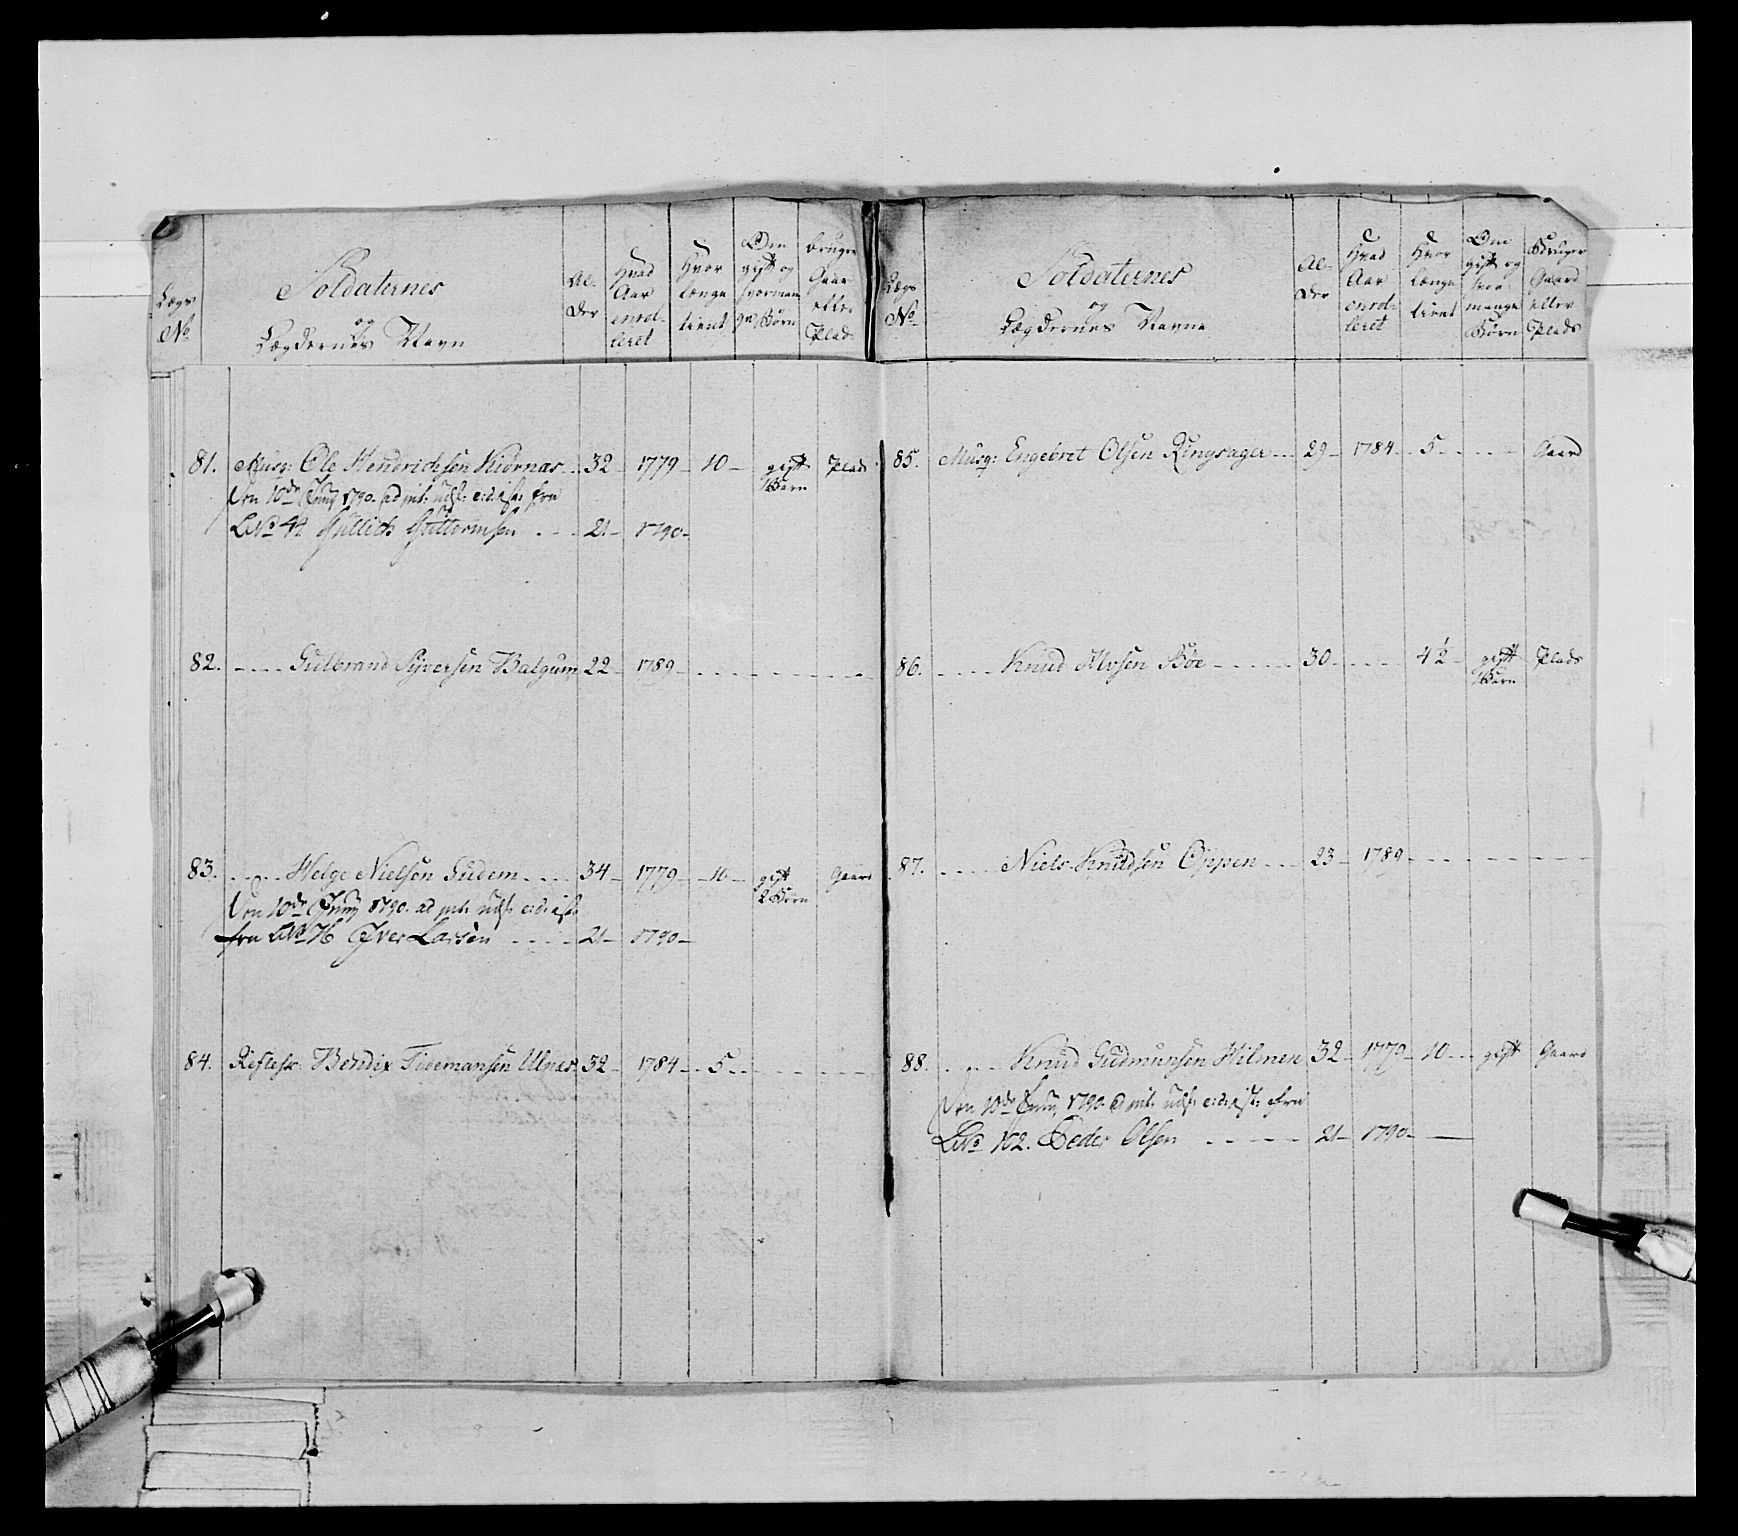 Lægs No
Soldaternes
og
Lægdernes Navn
Al-
der
Hvad
Aar
enrol-
leret
Hvor
længe
tient
Om
gift og
hvorman
ge Børn
bruger
Gaar
eller
Plads
81. Musq: Ole Hendrichsen Kiörnaas 32 1779 10 gift 1 Barn Plads
Den 10de Juny 1790 fra
LNo 44 Gullich Guttormsen 21 1790
82. Gulbrand Syversen Balgum 22 1789
83. Helge Nielsen Gudem 34 1779 10 gift 2 Börn Gaard
Den 10de Juny 1790
fra LNo 76 Iver Larsen 21 1790
84. Bendix Tidemansen Ulnes 32 1784 5
Lægs No
Soldaternes
og
Lægdernes Navne
Al-
der
Hvad
Aar
enrol-
leret
Hvor
længe
tient
Om
gift og
hvor
mange
Börn
Bruger
Gaard
eller
Plads
85. Musq: Engebret Olsen Ringsager 29 1784 5 Gaard
86. Knud Alvsen Böe 30 4½ gift 1 Barn Plads
87. Niels Knudsen Oppen 23 1789
88. Knud Gudmunsen Hilmen 32 1779 10 gift Gaard
Den 10de Juny 1790 fra
LNo 102. Peder Olsen 21 1790